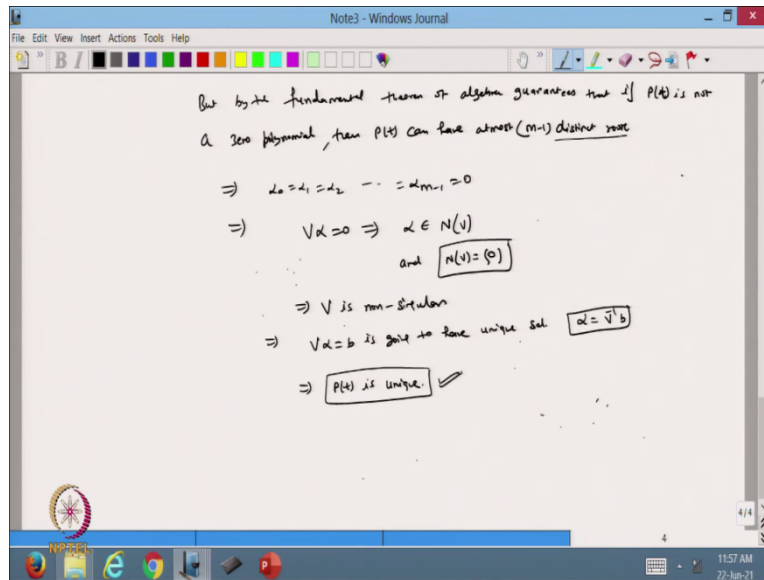 Note3 - Windows Journal
File Edit View Insert Actions Tools Help
But by the fundamental theorem of algebra guarantees that if P(t) is not
a zero polynomial, then P(t) can have atmost (m-1) distinct roots
⇒ α₀ = α₁ = α₂ --- = αₘ₋₁ = 0
⇒ Vα = 0 ⇒ α ∈ N(V)
and N(V) = {0}
⇒ V is non-singular
⇒ Vα = b is going to have unique sol. α = V⁻¹b
⇒ P(t) is unique. ✓
4/4
4
NPTEL
11:57 AM
22-Jun-21